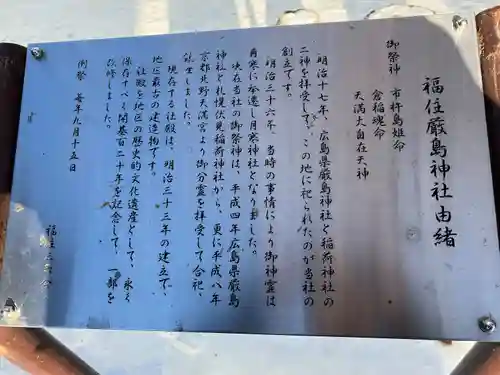 福住厳島神社由緒
御祭神 市杵島姫命
倉稲魂命
天満大自在天神
明治十七年、広島県厳島神社と稲荷神社の
二神を拝受して、この地に祀られたのが当社の
創立です。
明治三十六年、当時の事情により御神霊は
月寒に奉遷し月寒神社となりました。
現在当社の御祭神は、平成四年広島県厳島
神社と札幌伏見稲荷神社から、更に平成八年
京都北野天満宮より御分霊を拝受して合祀、
致しました。
現存する社殿は、明治三十三年の建立で、
地区最古の建造物です。
社殿を地区の歴史的文化遺産として、永く
保存すべく開基百二十年を記念して、一部を
改修しました。
例祭 毎年九月十五日
福住